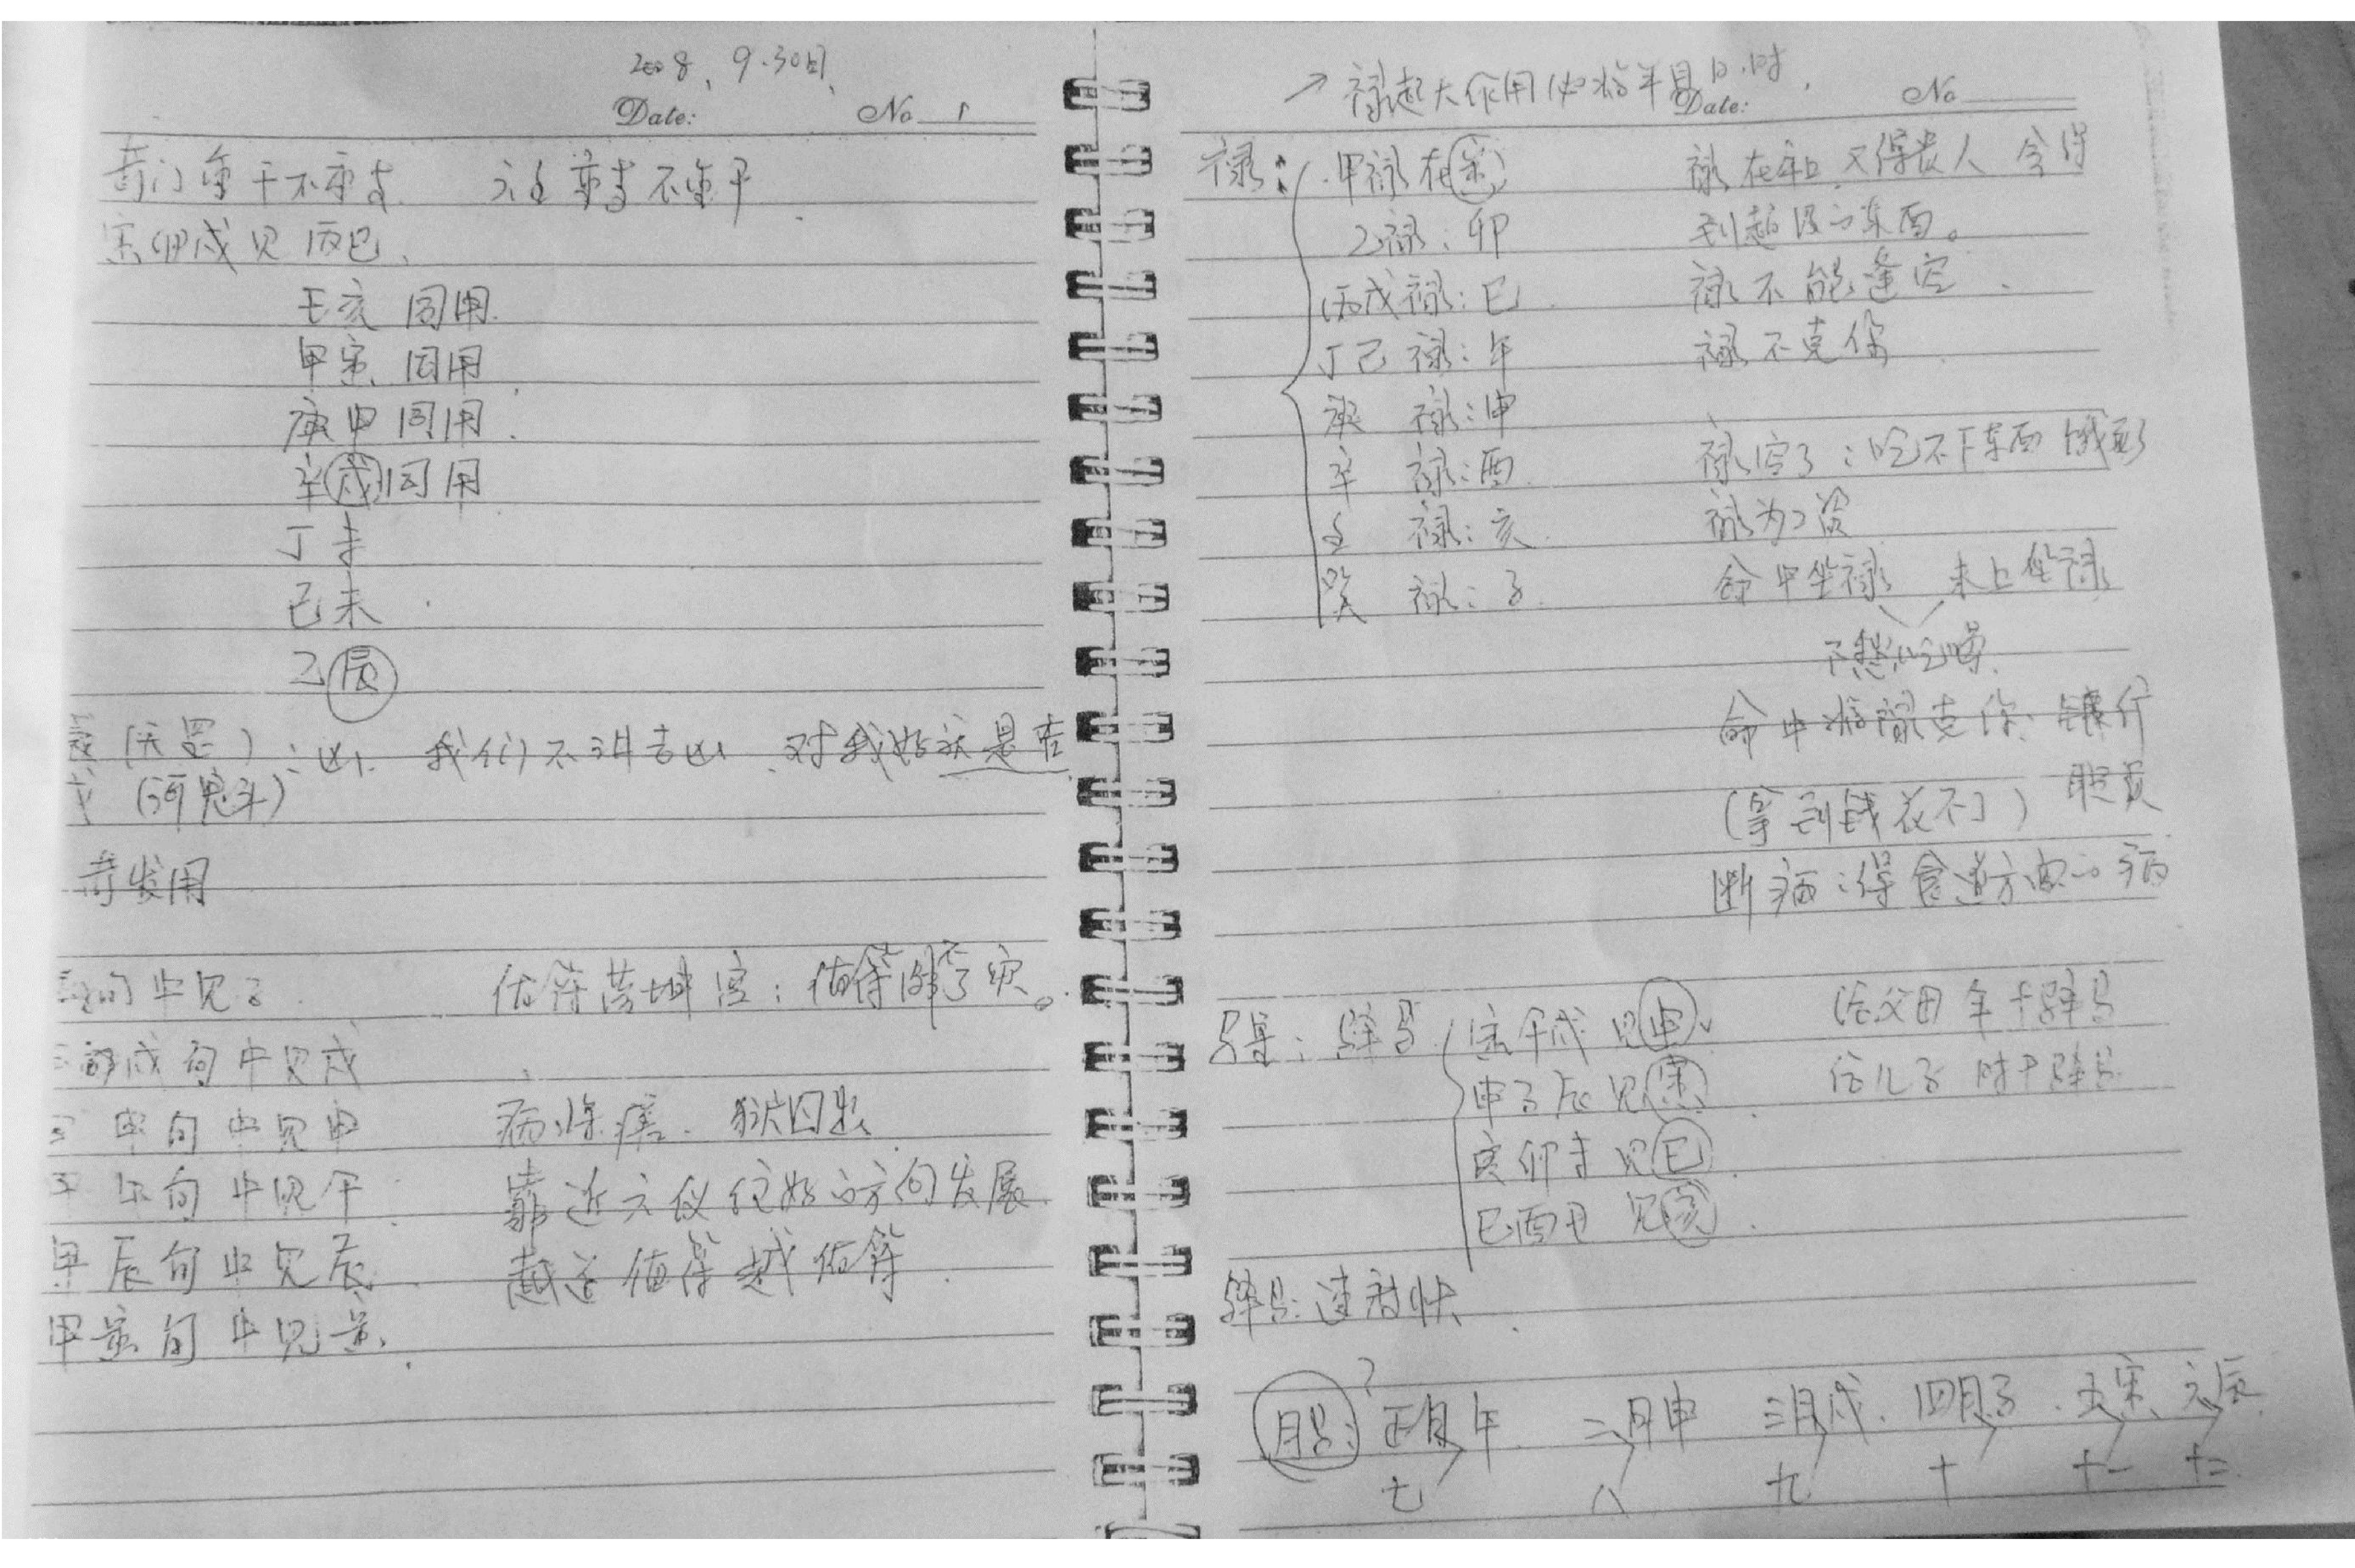 2008、9.30日
Date: No 1
奇门重干不重支 六壬重支不重干
寅卯戌见丙巳、
壬亥 同用
甲寅 同用
庚申 同用
辛戌 同用
丁未
己未
乙辰
(天罡):凶 我们不讲吉凶、对我好就是吉
戌 (河魁)
奇发用
旬中见子
戌旬中见戌
申旬中见申
午旬中见午
甲辰旬中见辰
甲寅旬中见寅
值符落 宫:值符 了灾。
病 狱囚出
靠近六仪往好的方向发展
越近值符越 符
→禄起大作用 年月日.时
Date: No
禄: 甲禄在寅
乙禄:卯
丙戊禄:巳
丁己禄:午
庚 禄:申
辛 禄:酉
壬 禄:亥
癸 禄:子
禄在 又得贵人 会得
到 的东西。
禄不能逢空
禄不克你
禄空了:吃不下东西饿死
禄为工资
命中坐禄 未上坐禄
不想吃喝
命中 禄克你:
(拿到钱花不了)
断病:得食道方面的病
驿马 寅午戌见申
申子辰见寅
亥卯未见巳
巳酉丑见亥
占父母年干驿马
占儿子时干驿马
驿马:速度快
?
月马:正月午 二月申 三月戌、四月子、五寅、六辰
七 八 九 十 十一 十二